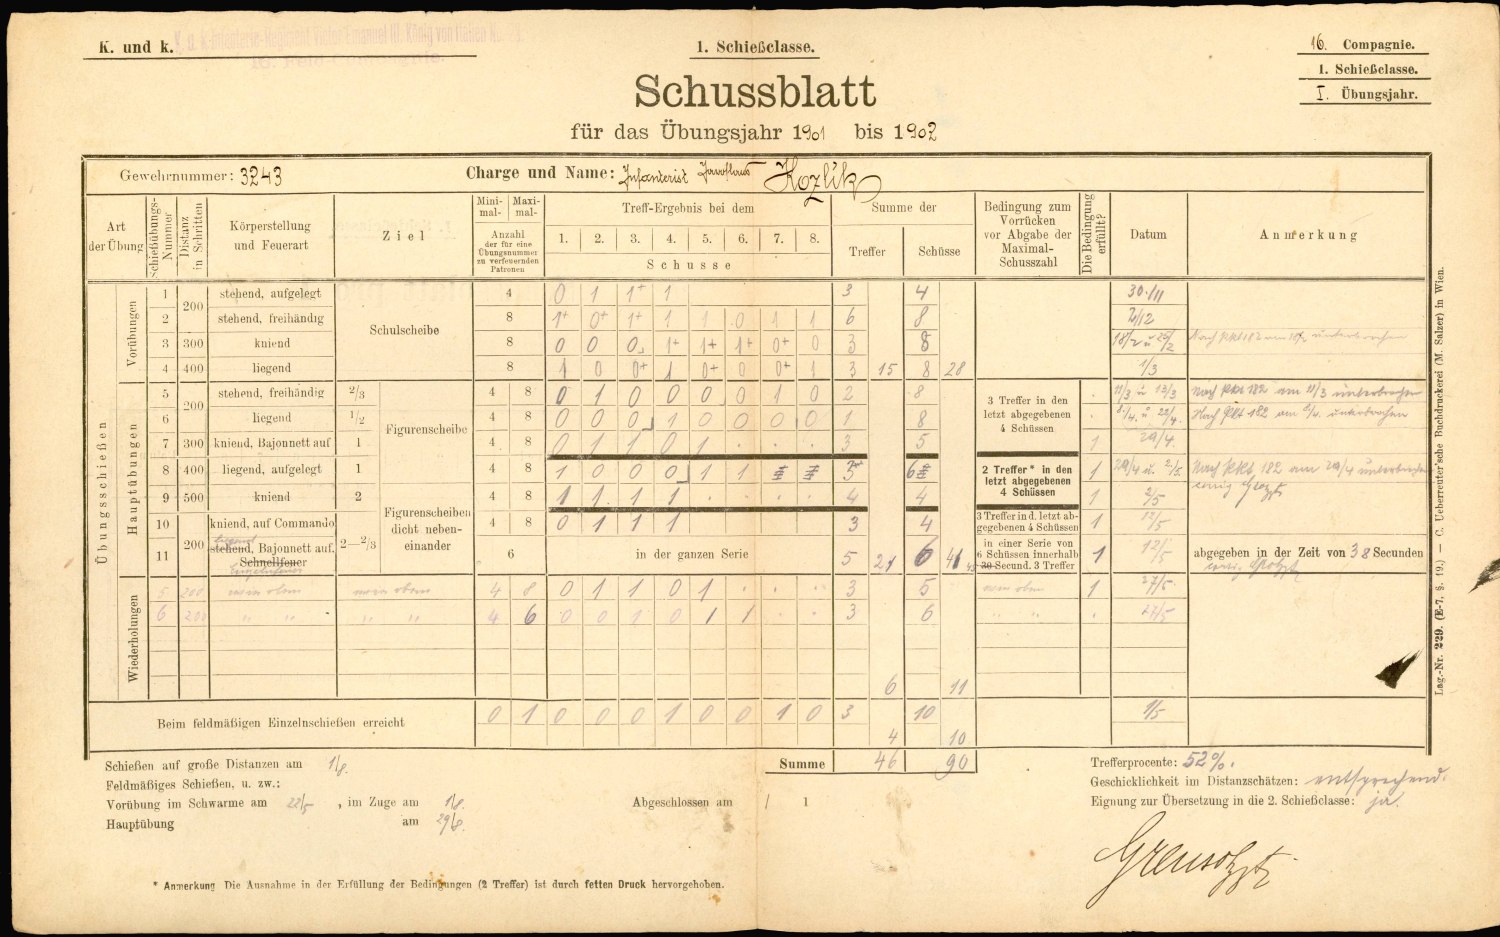 K. und k. Infanterie-Regiment Victor Emanuel III. König von Italien No. 28
16. Feld-Compagnie.
1. Schießclasse.
16. Compagnie.
1. Schießclasse.
I. Übungsjahr.
Schussblatt
für das Übungsjahr 1901 bis 1902
Gewehrnummer: 3243 Charge und Name: Infanterist Jaroslaus Kozlik
Art der Übung
Schießübungs-Nummer
Distanz in Schritten
Körperstellung und Feuerart
Ziel
Mini-mal- Maxi-mal-
Anzahl der für eine Übungsnummer zu verfeuernden Patronen
Treff-Ergebnis bei dem
1. 2. 3. 4. 5. 6. 7. 8.
Schusse
Summe der
Treffer Schüsse
Bedingung zum Vorrücken vor Abgabe der Maximal-Schusszahl
Die Bedingung erfüllt?
Datum
Anmerkung
Übungsschießen
Vorübungen
1 200 stehend, aufgelegt Schulscheibe 4 0 1 1+ 1 3 4 30./11
2 stehend, freihändig 8 1+ 0+ 1+ 1 1 0 1 1 6 8 2/12
3 300 kniend 8 0 0 0 1+ 1+ 1+ 0+ 0 3 8 18/2 u 28/2 unterbrochen
4 400 liegend 8 1 0 0+ 1 0+ 0 0+ 1 3 15 8 28 1/3
Hauptübungen
5 200 stehend, freihändig 2/3 Figurenscheibe 4 8 0 1 0 0 0 0 1 0 2 8 3 Treffer in den letzt abgegebenen 4 Schüssen . 11/3 u 13/3 Nach Pkt 182 am 11/3 unterbrochen
6 liegend 1/2 4 8 0 0 0 1 0 0 0 0 1 8 . 8/4. u. 22/4. Nach Pkt 182 am 8/4. unterbrochen
7 300 kniend, Bajonnett auf 1 4 8 0 1 1 0 1 . . . 3 5 1 29/4.
8 400 liegend, aufgelegt 1 4 8 1 0 0 0 1 1 3 6 2 Treffer* in den letzt abgegebenen 4 Schüssen 1 29/4 u. 2/5. Nach Pkt. 182 am 29/4 unterbrochen
9 500 kniend 2 Figurenscheiben dicht neben-einander 4 8 1 1 1 1 . . . . 4 4 1 2/5
10 200 kniend, auf Commando 2—2/3 4 8 0 1 1 1 3 4 3 Treffer in d. letzt ab-gegebenen 4 Schüssen 1 12/5
11 liegend stehend, Bajonnett auf. Schnellfeuer Einzelnfeuer 6 in der ganzen Serie 5 21 6 41 45 in einer Serie von 6 Schüssen innerhalb 30 Secund. 3 Treffer 1 12/5 abgegeben in der Zeit von 38 Secunden
Wiederholungen
5 200 wie oben wie oben 4 8 0 1 1 0 1 . . . 3 5 wie oben 1 27/5.
6 200 " " " " 4 6 0 0 1 0 1 1 3 6 " " . 27/5
6 11
Beim feldmäßigen Einzelnschießen erreicht 0 1 0 0 0 1 0 0 1 0 3 10 1/5
4 10
Summe 46 90
Schießen auf große Distanzen am 1/8.
Feldmäßiges Schießen, u. zw.:
Vorübung im Schwarme am 22/5, im Zuge am 1/8.
Hauptübung am 29/8.
Abgeschlossen am / 1
Trefferprocente: 52%.
Geschicklichkeit im Distanzschätzen: entsprechend.
Eignung zur Übersetzung in die 2. Schießclasse: ja.
* Anmerkung Die Ausnahme in der Erfüllung der Bedingungen (2 Treffer) ist durch fetten Druck hervorgehoben.
Lag.-Nr. 229. (E-7, §. 19.) — C. Ueberreuter'sche Buchdruckerei (M. Salzer) in Wien.